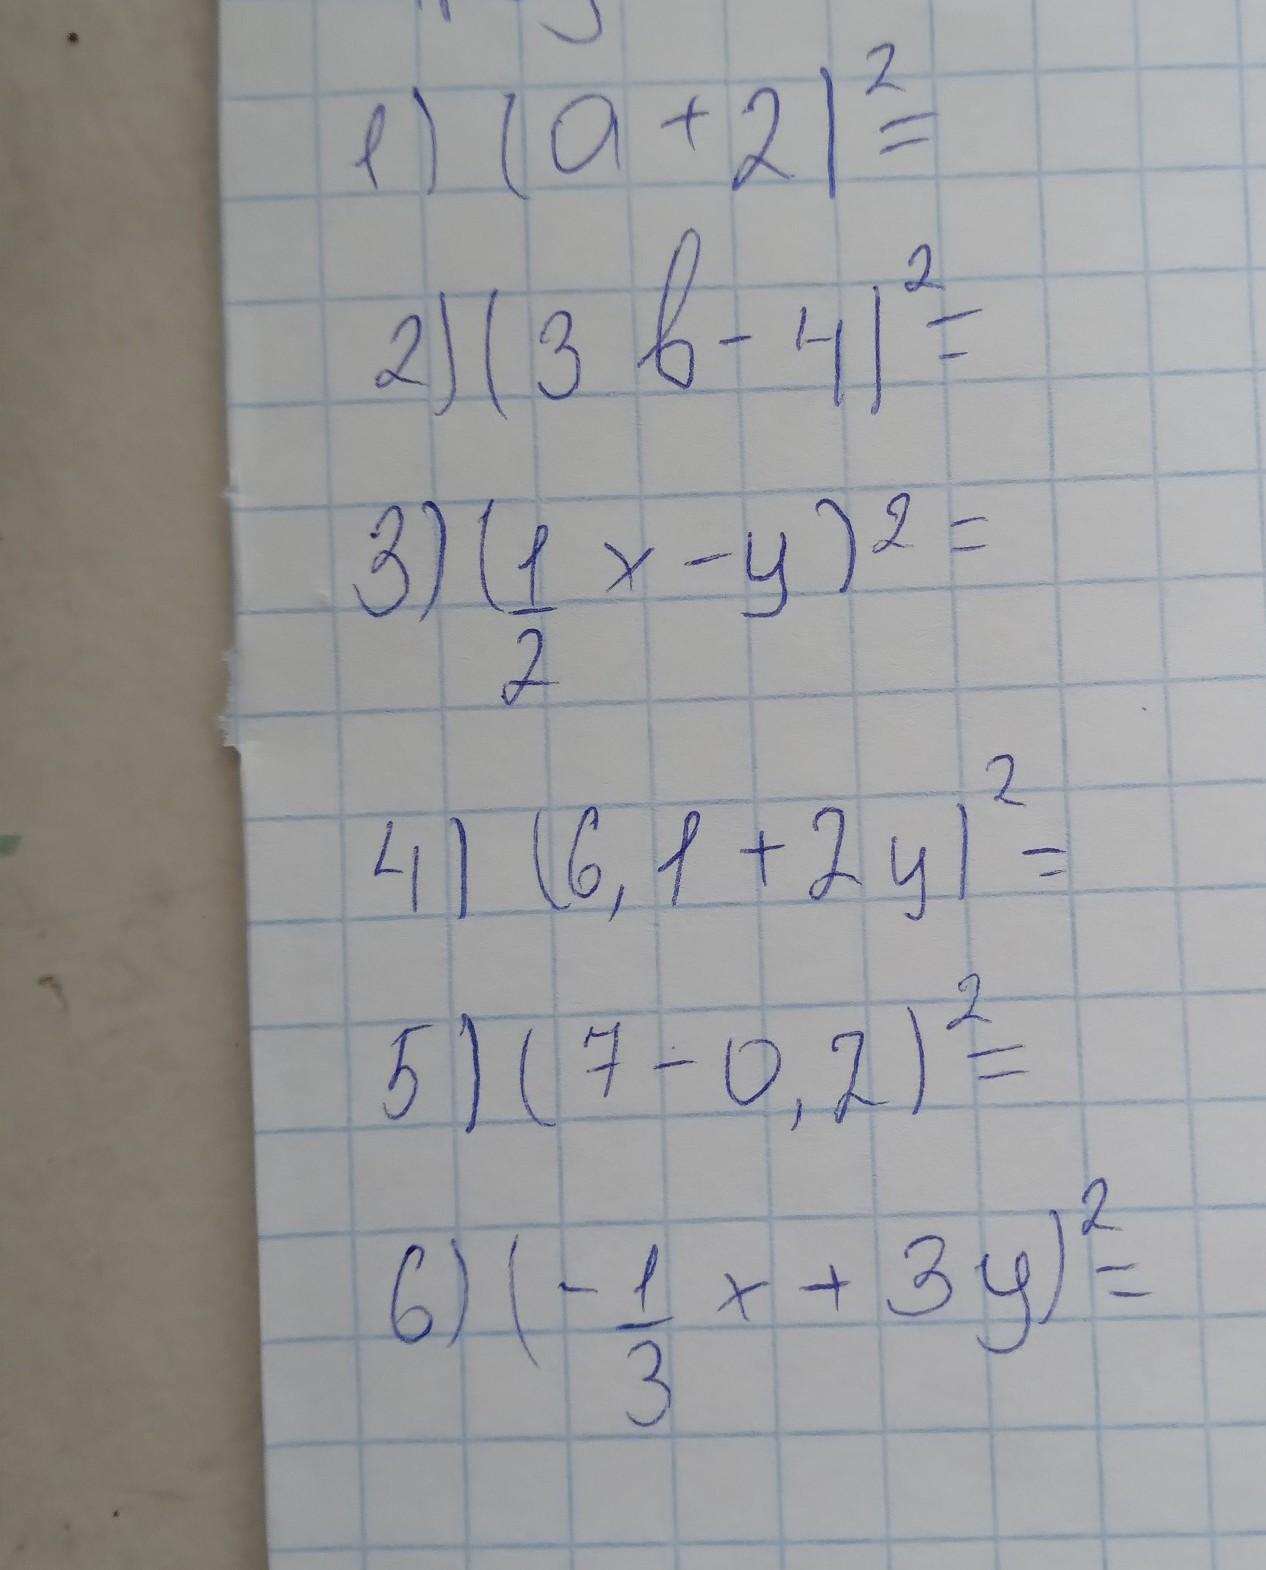 1) (a + 2)² =
2) (3b - 4)² =
3) (1/2 x - y)² =
4) (6,1 + 2y)² =
5) (7 - 0,2)² =
6) (-1/3 x + 3y)² =